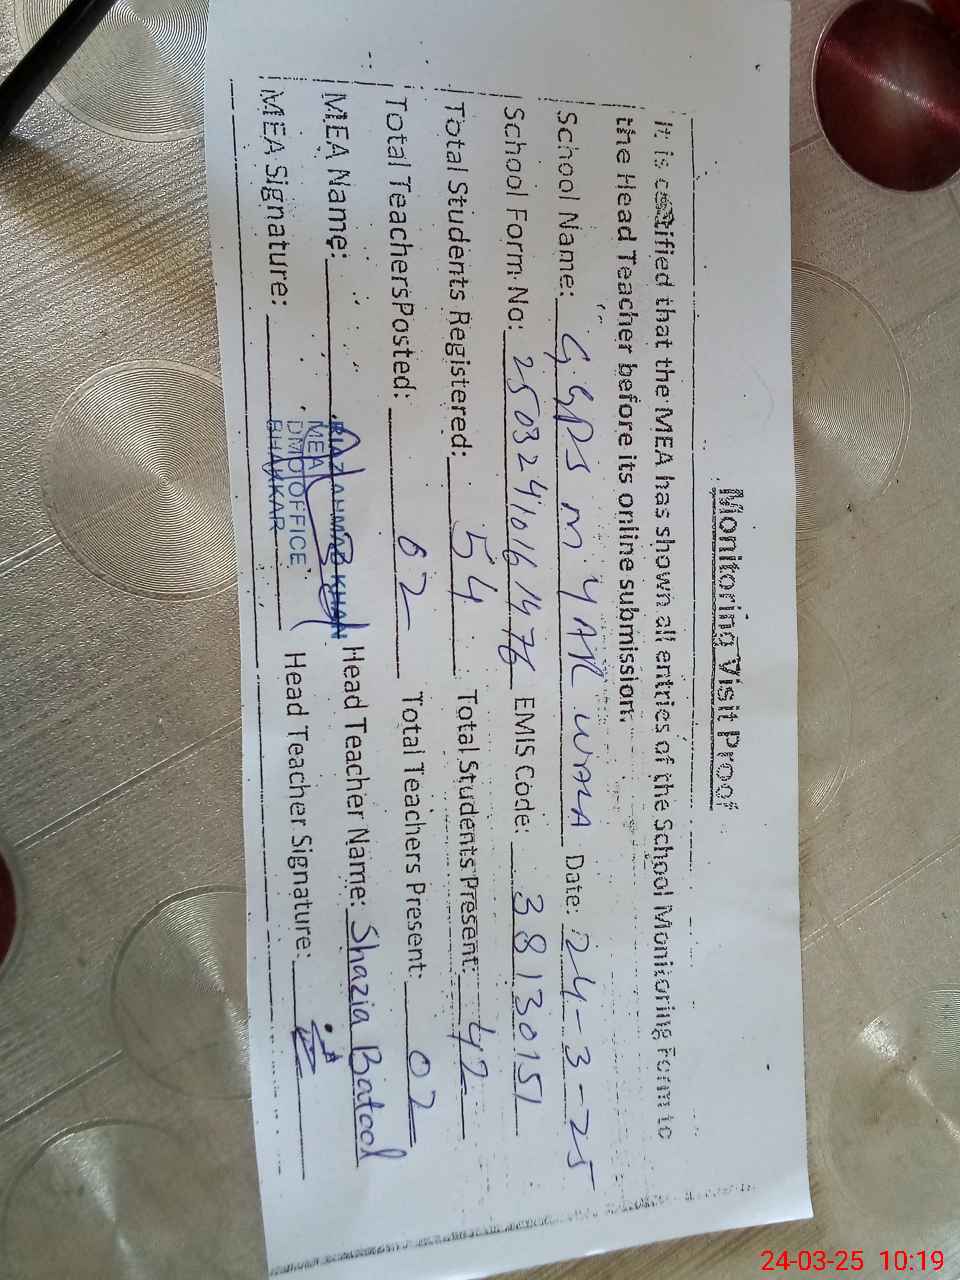 Monitoring Visit Proof
It is certified that the MEA has shown all entries of the School Monitoring Form to
the Head Teacher before its online submission.
School Name: GGPS M. YAR WALA Date: 24-3-25
School Form. No: 25032410161476 EMIS Code: 38130151
Total Students Registered: 54 Total Students Present: 42
Total Teachers Posted: 02 Total Teachers Present: 02
MEA Name: RIAZ AHMAD KHAN Head Teacher Name: Shazia Batool
MEA
DMO OFFICE
BHAKKAR
MEA Signature: Head Teacher Signature:
24-03-25 10:19